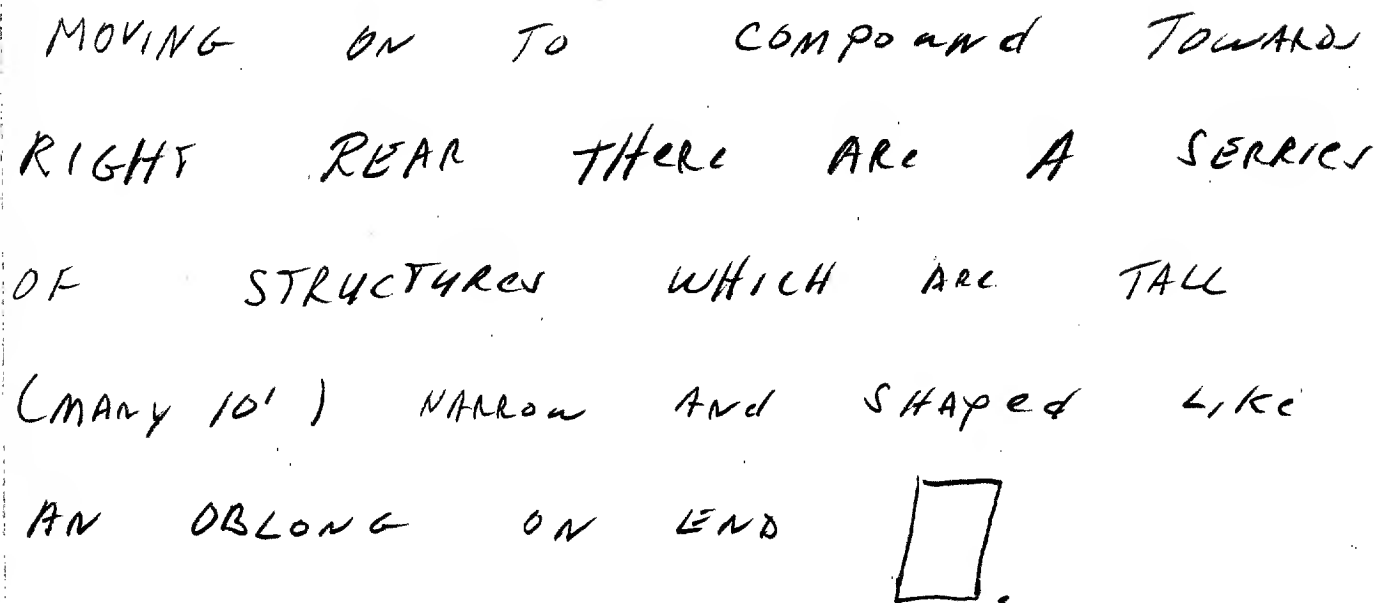 MOVING ON TO COMPOUNd TOWARDS
RIGHT REAR THeRe ARe A SERRIES
OF STRUCTUReS WHICH ARe TALL
(MANY 10') NARROW ANd SHAPed LIKe
AN OBLONG ON END .